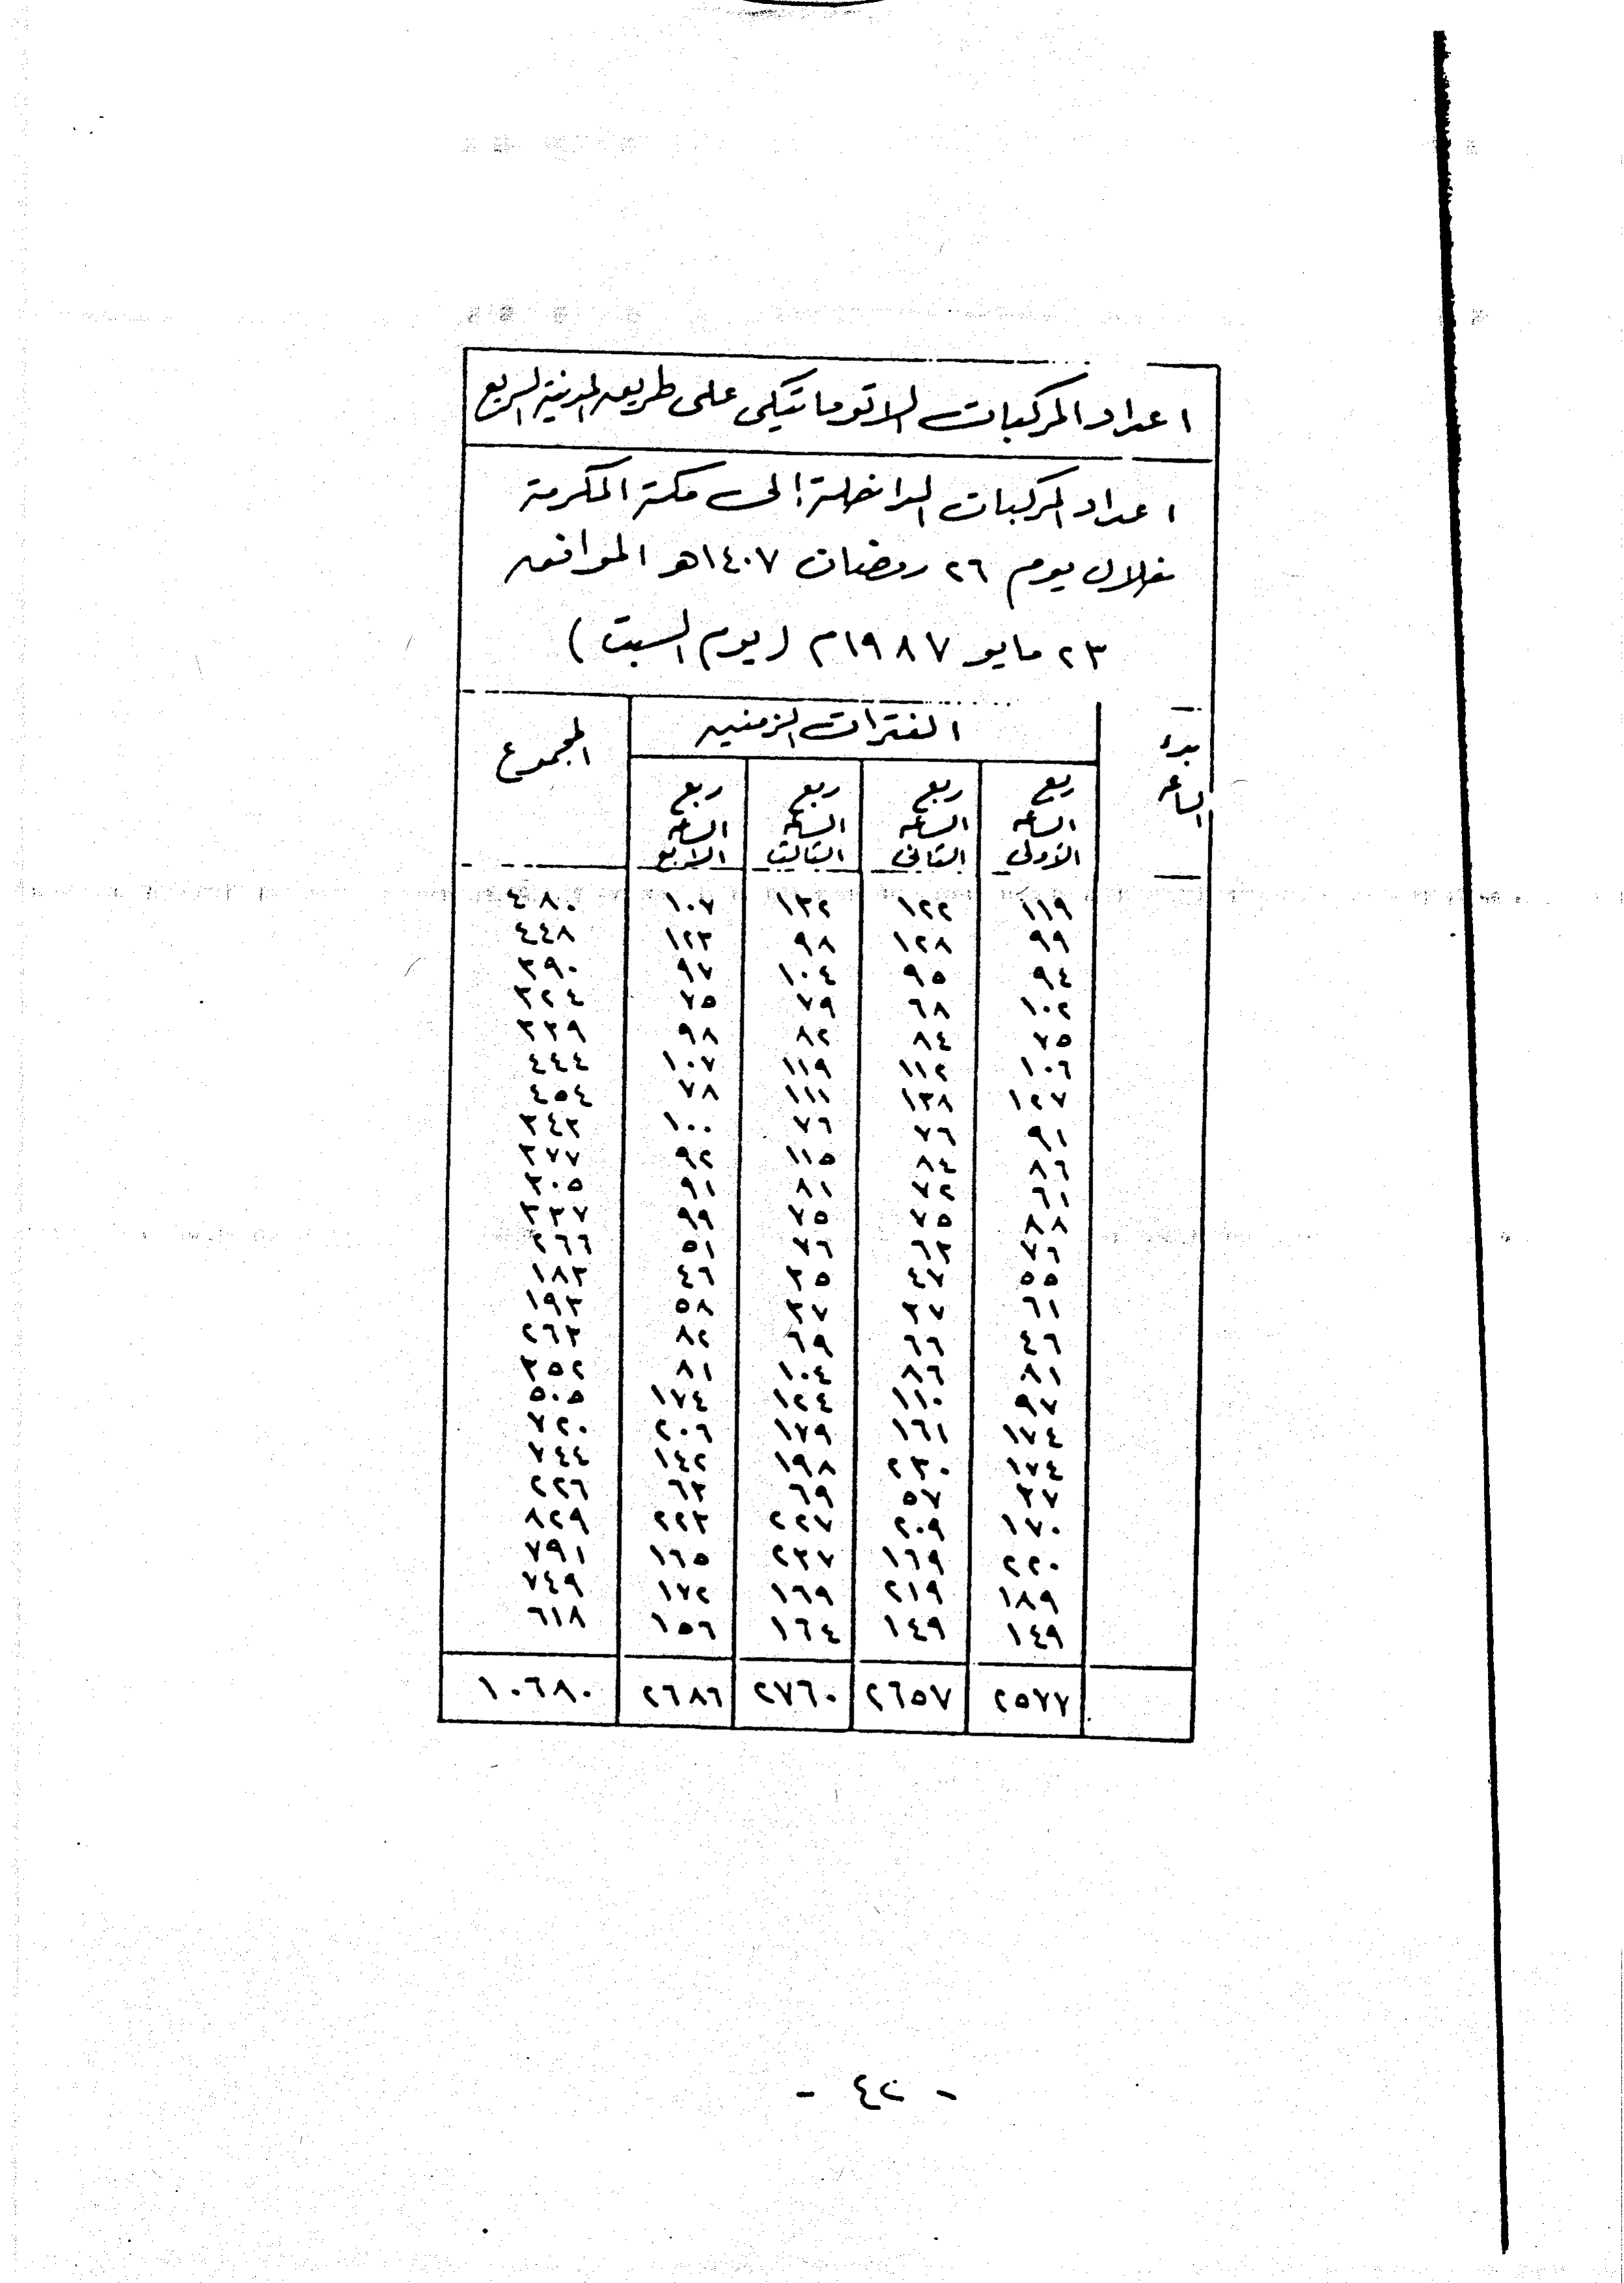 اعداد المركبات الاتوماتيكى على طريق المدينة السريع
اعداد المركبات الداخلة إلى مكة المكرمة
خلال يوم ٢٦ رمضان ١٤٠٧هـ الموافق
٢٣ مايو ١٩٨٧م (يوم السبت)
بدء الساعه | الفترات الزمنيه | المجموع
ربع الساعه الاولى | ربع الساعه الثانى | ربع الساعه الثالث | ربع الساعه الرابع
١١٩ | ١٢٢ | ١٣٢ | ١٠٧ | ٤٨٠
٩٩ | ١٢٨ | ٩٨ | ١٢٣ | ٤٤٨
٩٤ | ٩٥ | ١٠٤ | ٩٧ | ٣٩٠
١٠٢ | ٦٨ | ٧٩ | ٧٥ | ٣٢٤
٧٥ | ٨٤ | ٨٢ | ٩٨ | ٣٣٩
١٠٦ | ١١٢ | ١١٩ | ١٠٧ | ٤٤٤
١٢٧ | ١٣٨ | ١١١ | ٧٨ | ٤٥٤
٩١ | ٧٦ | ٧٦ | ١٠٠ | ٣٤٣
٨٦ | ٨٤ | ١١٥ | ٩٢ | ٣٧٧
٦١ | ٧٢ | ٨١ | ٩١ | ٣٠٥
٨٨ | ٧٥ | ٧٥ | ٩٩ | ٣٣٧
٧٦ | ٦٣ | ٧٦ | ٥١ | ٢٦٦
٥٥ | ٤٧ | ٣٥ | ٤٦ | ١٨٣
٦١ | ٣٧ | ٣٧ | ٥٨ | ١٩٣
٤٦ | ٦٦ | ٦٩ | ٨٢ | ٢٦٣
٨١ | ٨٦ | ١٠٤ | ٨١ | ٣٥٢
٩٧ | ١١٠ | ١٢٤ | ١٧٤ | ٥٠٥
١٧٤ | ١٦١ | ١٧٩ | ٢٠٦ | ٧٢٠
١٧٤ | ٢٣٠ | ١٩٨ | ١٤٢ | ٧٤٤
٣٧ | ٥٧ | ٦٩ | ٦٣ | ٢٢٦
١٧٠ | ٢٠٩ | ٢٢٧ | ٢٢٣ | ٨٢٩
٢٢٠ | ١٦٩ | ٢٣٧ | ١٦٥ | ٧٩١
١٨٩ | ٢١٩ | ١٦٩ | ١٧٢ | ٧٤٩
١٤٩ | ١٤٩ | ١٦٤ | ١٥٦ | ٦١٨
٢٥٧٧ | ٢٦٥٧ | ٢٧٦٠ | ٢٦٨٦ | ١٠٦٨٠
- ٤٢ -